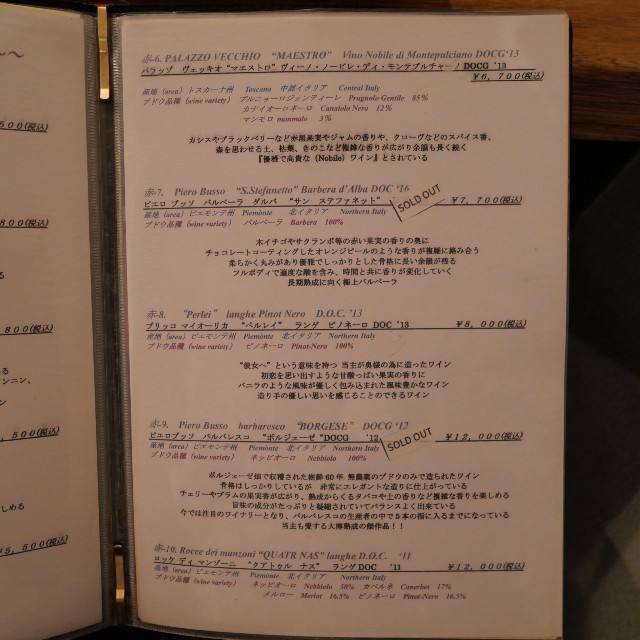 500(税込)
800(税込)
800(税込)
500(税込)
500(税込)
¥5,500(税込)
赤-6. PALAZZO VECCHIO "MAESTRO" Vino Nobile di Montepulciano DOCG'13
パラッゾ ヴェッキオ "マエストロ" ヴィーノ・ノービレ・ディ・モンテプルチャーノ DOCG '13
¥6,700(税込)
産地 (area) トスカーナ州 Toscana 中部イタリア Central Italy
ブドウ品種 (wine variety) プルニョーロジェンティーレ Prugnolo Gentile 85%
カナイオローネーロ Canaiolo Nero 12%
マンモロ mammolo 3%
カシスやブラックベリーなど赤黒果実やジャムの香りや、クローヴなどのスパイス香、
森を思わせる土、枯葉、きのこなど複雑な香りが広がり余韻も長く続く
『優雅で高貴な (Nobile) ワイン』とされている
赤-7. Piero Busso "S.Stefanetto" Barbera d'Alba DOC '16
ピエロ ブッソ バルベーラ ダルバ "サン ステファネット"
SOLD OUT
¥7,700(税込)
産地 (area) ピエモンテ州 Piemonte 北イタリア Northern Italy
ブドウ品種 (wine variety) バルベーラ Barbera 100%
木イチゴやサクランボ等の赤い果実の香りの奥に
チョコレートコーティングしたオレンジピールのような香りが複雑に絡み合う
柔らかく丸みがあり優雅でしっかりとした骨格に長い余韻が残る
フルボディで適度な酸を含み、時間と共に香りが変化していく
長期熟成に向く極上バルベーラ
赤-8. "Perlei" langhe Pinot Nero D.O.C. '13
ブリッコ マイオーリカ "ペルレイ" ランゲ ピノネーロ DOC '13
¥8,000(税込)
産地 (area) ピエモンテ州 Piemonte 北イタリア Northern Italy
ブドウ品種 (wine variety) ピノネーロ Pinot-Nero 100%
"彼女へ" という意味を持つ 当主が奥様の為に造ったワイン
初恋を思い出すような甘酸っぱい果実の香りに
バニラのような風味が優しく包み込まれた風味豊かなワイン
造り手の優しい思いを感じることのできるワイン
赤-9. Piero Busso barbaresco "BORGESE" DOCG '12
ピエロブッソ バルバレスコ "ボルジェーゼ" DOCG '12
SOLD OUT
¥12,000(税込)
産地 (area) ピエモンテ州 Piemonte 北イタリア Northern Italy
ブドウ品種 (wine variety) ネッビオーロ Nebbiolo 100%
ボルジェーゼ畑で収穫された樹齢60年 無農薬のブドウのみで造られたワイン
骨格はしっかりしているが 非常にエレガントな造りに仕上がっている
チェリーやプラムの果実香が広がり、熟成からくるタバコや土の香りなど複雑な香りを楽しめる
旨味の成分がたっぷりと凝縮されていてバランスよく出来ている
今では注目のワイナリーとなり、バルバレスコの生産者の中で5本の指に入るまでになっている
当主も愛する大博熟成の傑作品!!
赤-10. Rocce dei manzoni "QUATR NAS" langhe D.O.C. '11
ロッケ ディ マンゾーニ "クアトゥル ナス" ランゲ DOC '11
¥12,000(税込)
産地 (area) ピエモンテ州 Piemonte 北イタリア Northern Italy
ブドウ品種 (wine variety) ネッビオーロ Nebbiolo 50% カベルネ Caberhet 17%
メルロー Merlot 16.5% ピノネーロ Pinot-Nero 16.5%